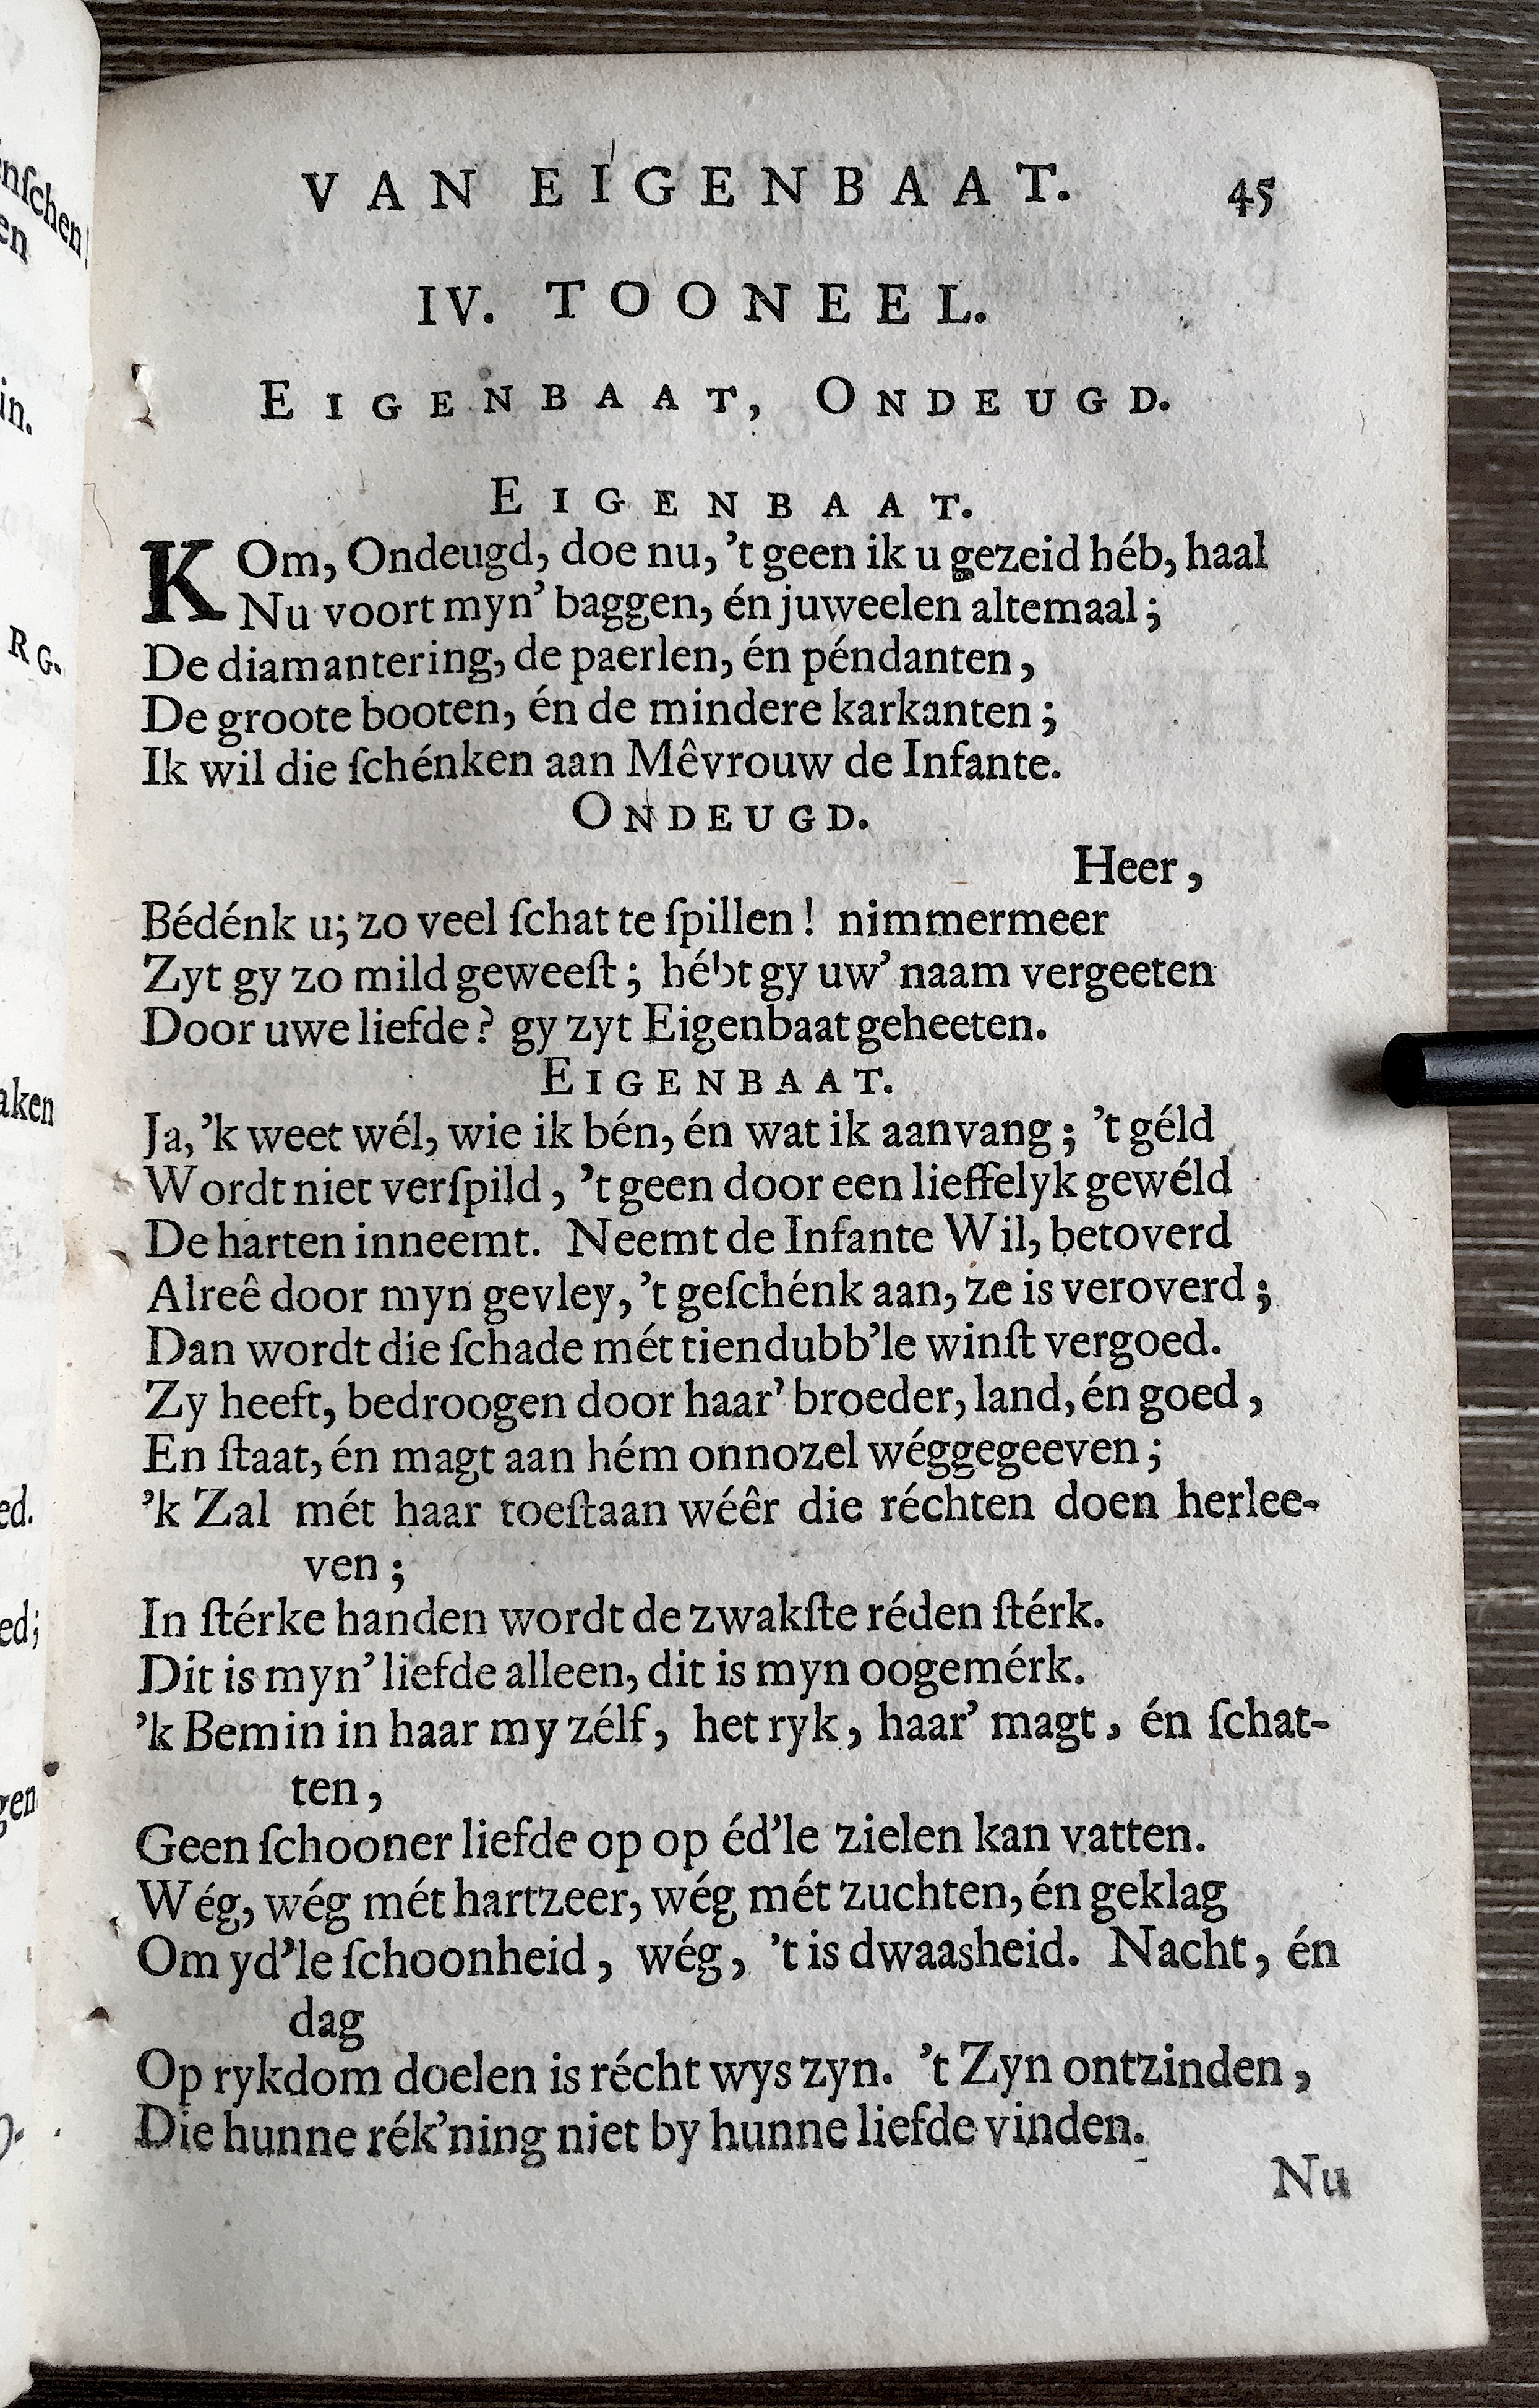 VAN EIGENBAAT. 45
IV. TOONEEL.
EIGENBAAT, ONDEUGD.
EIGENBAAT.
KOm, Ondeugd, doe nu, 't geen ik u gezeid héb, haal
Nu voort myn' baggen, én juweelen altemaal;
De diamantering, de paerlen, én péndanten,
De groote booten, én de mindere karkanten;
Ik wil die ſchénken aan Mêvrouw de Infante.
ONDEUGD.
Heer,
Bédénk u; zo veel ſchat te ſpillen! nimmermeer
Zyt gy zo mild geweeſt; hébt gy uw' naam vergeeten
Door uwe liefde? gy zyt Eigenbaat geheeten.
EIGENBAAT.
Ja, 'k weet wél, wie ik bén, én wat ik aanvang; 't géld
Wordt niet verſpild, 't geen door een lieffelyk gewéld
De harten inneemt. Neemt de Infante Wil, betoverd
Alreê door myn gevley, 't geſchénk aan, ze is veroverd;
Dan wordt die ſchade mét tiendubb'le winſt vergoed.
Zy heeft, bedroogen door haar' broeder, land, én goed,
En ſtaat, én magt aan hém onnozel wéggegeeven;
'k Zal mét haar toeſtaan wéêr die réchten doen herlee-
ven;
In ſtérke handen wordt de zwakſte réden ſtérk.
Dit is myn' liefde alleen, dit is myn oogemérk.
'k Bemin in haar my zélf, het ryk, haar' magt, én ſchat-
ten,
Geen ſchooner liefde op op éd'le zielen kan vatten.
Wég, wég mét hartzeer, wég mét zuchten, én geklag
Om yd'le ſchoonheid, wég, 't is dwaasheid. Nacht, én
dag
Op rykdom doelen is récht wys zyn. 't Zyn ontzinden,
Die hunne rék'ning niet by hunne liefde vinden.
Nu